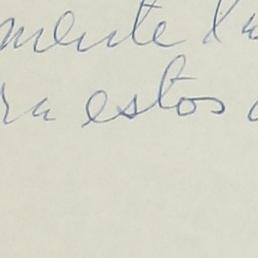 mente
ra estos